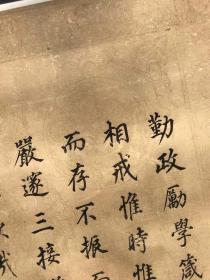 勤政勵學箴
相戒惟時惟
而存不振
嚴邃三接